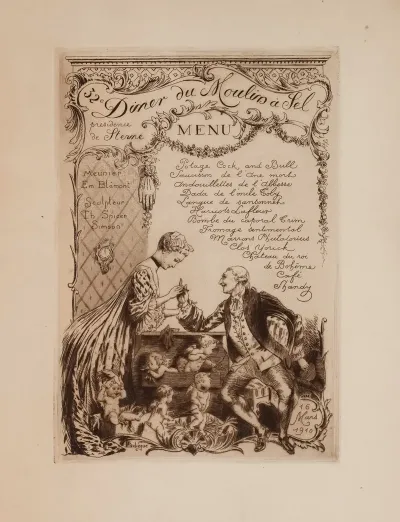 32e Dîner du Moulin à Sel
présidence
de Sterne
MENU
Meunier
Em. Blémont
Sculpteur
Th. Spicer
Simson
Potage Cock and Bull
Saucisson de l'âne mort
Andouillettes de l'Abbesse
Dada de l'oncle Toby
Langue de sansonnet
Haricots Lafleur
Bombe du caporal Trim
Fromage sentimental
Marrons Phutatorius
Clos Yorick
Château du roi
de Bohême
Café
Shandy
16
Mars
1910